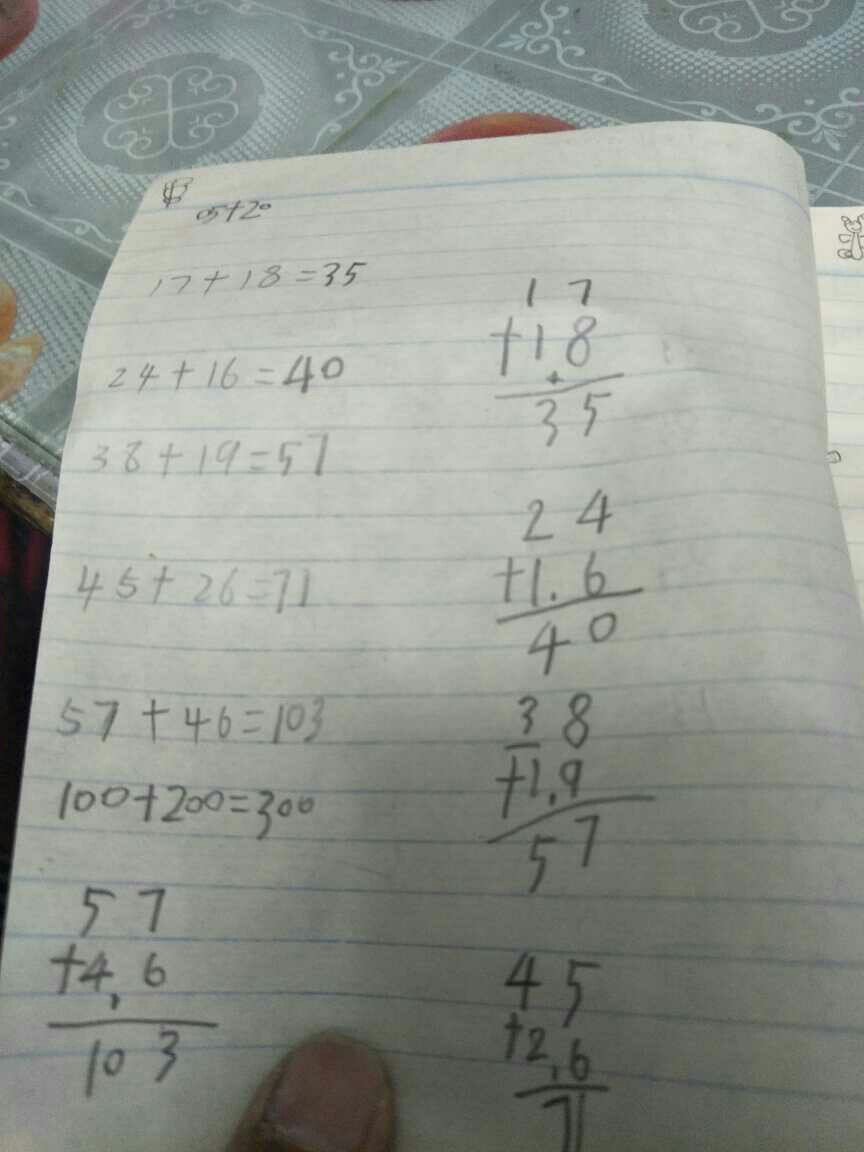 05+20
17+18=35
24+16=40
38+19=57
45+26=71
57+46=103
100+200=300
57
+4.6
103
17
+18
35
24
+1.6
40
38
+1.9
57
45
+2.6
71